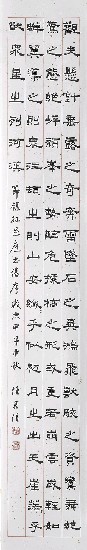 觀夫懸針垂露之奇奔雷墜石之異鴻飛獸駭之資鸞舞蛇
驚之態絕岸頹峰之勢臨危據槁之形或重若崩雲或輕如
蟬翼導之則泉注頓之則山安纖纖乎似初月之出天崖落落乎
猶眾星之列河漢 節錄孫過庭書譜